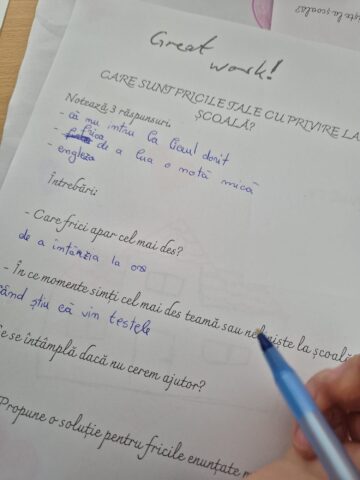 ște la școala?
Great
work!
CARE SUNT FRICILE TALE CU PRIVIRE LA
ȘCOALĂ?
Notează 3 răspunsuri.
- că nu intru la liceul dorit
- frica de a lua o notă mică
- engleza
Întrebări:
- Care frici apar cel mai des?
de a întârzia la ore
- În ce momente simți cel mai des teamă sau neliniște la școală?
când știu că vin testele
Ce se întâmplă dacă nu cerem ajutor?
Propune o soluție pentru fricile enunțate